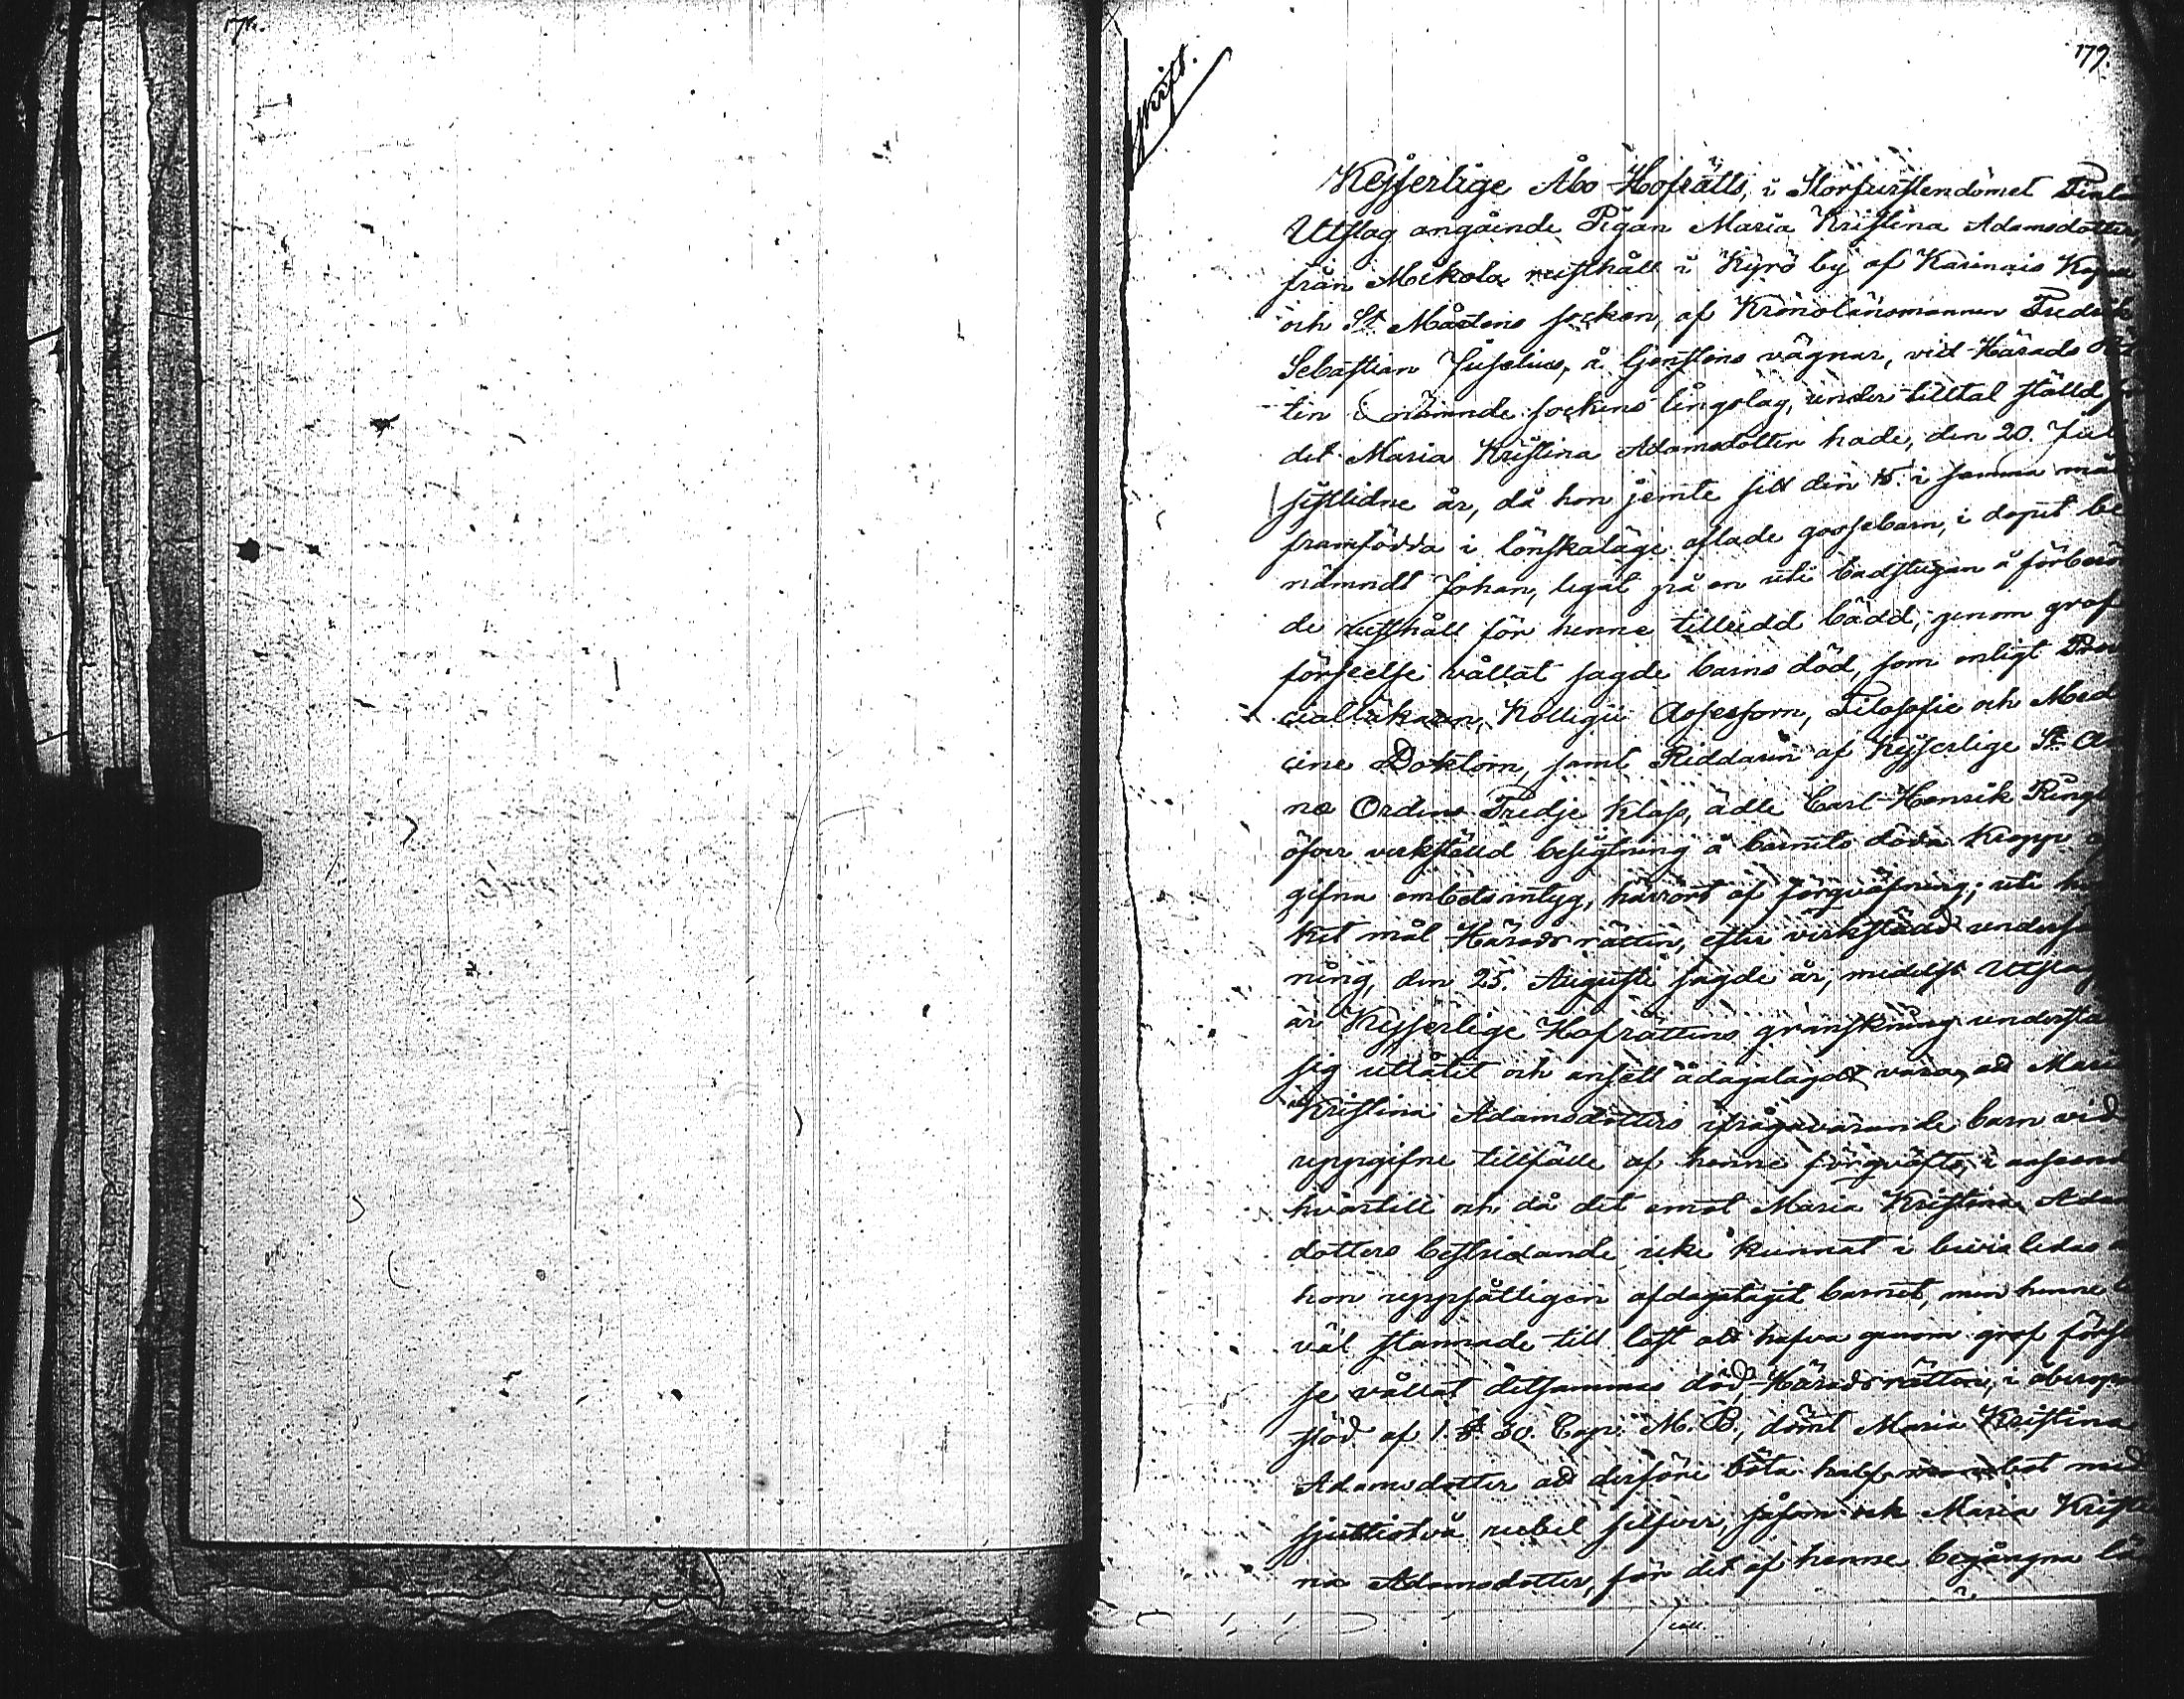 178.
179.
skrift.
Kejserlige Åbo Hofrätts, i Storfurstendömet Finlan
Utslag angående Pigan Maria Kristina Adamsdotter,
från Mikola rusthåll i Kyrö by af Karinais Kapell
och St Mårtens socken, af Kronolänsmannen Fredrik
Sebastian Juselius, å tjenstens vägnar, vid Härads Rät
ten i nämnde sockens tingslag, under tilltal ställd för
det Maria Kristina Adamsdotter hade, den 20. Juli
sistlidne år, då hon jemte sitt den 15. i samma mån
framfödda i lönskaläge aflade gossebarn, i dopet be
nämndt Johan, legat på en uti badstugan å förberör
de rusthåll för henne tillredd bädd, genom grof
förseelse vållat sagde barns död, som enligt Prov
cialläkaren, Kollegii Assessorn, Filosofie och Medi
cine Doktorn, samt Riddaren af Kejserlige St An
næ Ordens Tredje Klass, ädle Carl Henrik Ring
öfver verkställd besigtning å barnets döda kropp af
gifna embetsintyg, härrört af förqväfning; uti hvil
ket mål Häradsrätten, efter verkställd undersö
ning, den 25. Augusti sagde år, medelst Utslag,
är Kejserlige Hofrättens granskning understä
sig utlåtit och ansett ådagalagdt vara, att Maria
Kristina Adamsdotters ifrågavarande barn vid
uppgifne tillfälle af henne förqväfts, i anseende
hvartill och då det emot Maria Kristina Adams
dotters bestridande icke kunnat i bevis ledas a
hon uppsåtligen afdagatagit barnet, men henne l
väl stannade till last att hafva genom grof förse
se vållat detsammas död, Häradsrätten, i åberopa
stöd af 1. § 30. Cap. M. B., dömt Maria Kristina
Adamsdotter att derföre böta half mansbot med
sjuttiotvå rubel silfver, såsom ock Maria Kristi
na Adamsdotter, för det af henne begångna lön